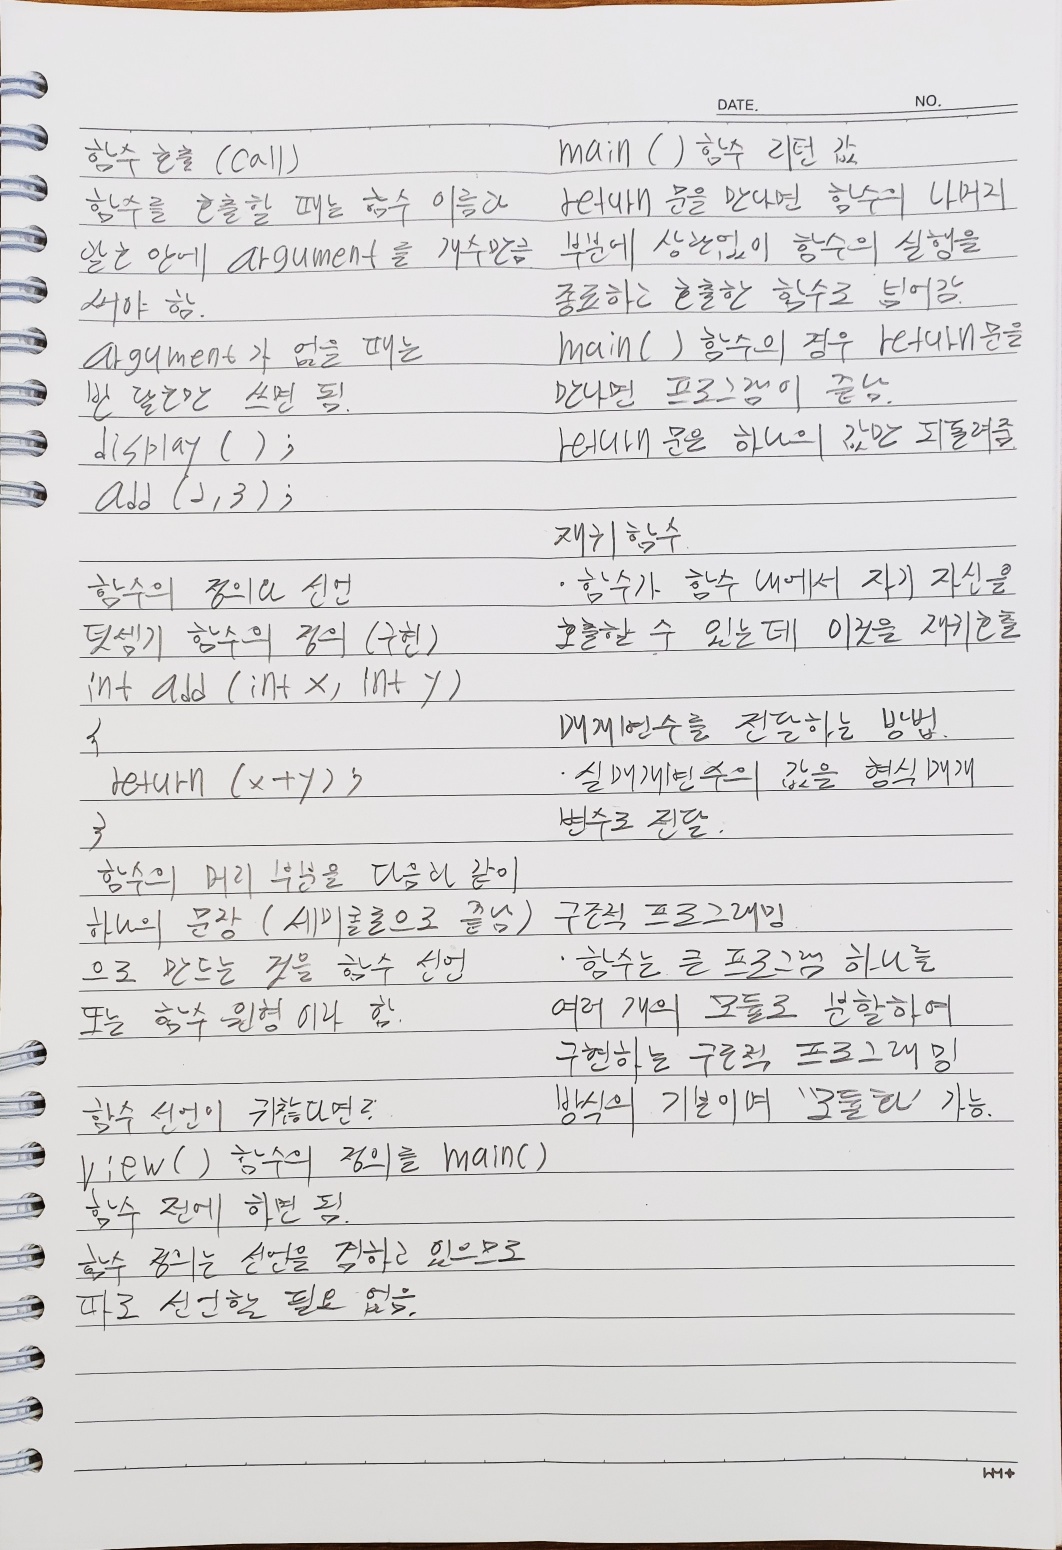 DATE. NO.
함수 호출 (call)
함수를 호출할 때는 함수 이름과
괄호 안에 argument를 개수만큼
써야 함.
argument가 없을 때는
빈 괄호만 쓰면 됨.
display ( ) ;
add (2, 3) ;
함수의 정의와 선언
덧셈기 함수의 정의 (구현)
int add (int x, int y)
{
return (x+y) ;
}
함수의 머리 부분을 다음과 같이
하나의 문장 (세미콜론으로 끝남)
으로 만드는 것을 함수 선언
또는 함수 원형이라 함.
함수 선언이 귀찮다면?
view() 함수의 정의를 main()
함수 전에 하면 됨.
함수 정의는 선언을 겸하고 있으므로
따로 선언할 필요 없음.
main ( ) 함수 리턴 값
return 문을 만나면 함수의 나머지
부분에 상관없이 함수의 실행을
종료하고 호출한 함수로 넘어감.
main( ) 함수의 경우 return문을
만나면 프로그램이 끝남.
return 문은 하나의 값만 되돌려줌
재귀 함수
· 함수가 함수 내에서 자기 자신을
호출할 수 있는데 이것을 재귀호출
매개변수를 전달하는 방법.
· 실매개변수의 값을 형식매개
변수로 전달.
구조적 프로그래밍
· 함수는 큰 프로그램 하나를
여러 개의 모듈로 분할하여
구현하는 구조적 프로그래밍
방식의 기본이며 '모듈화' 가능.